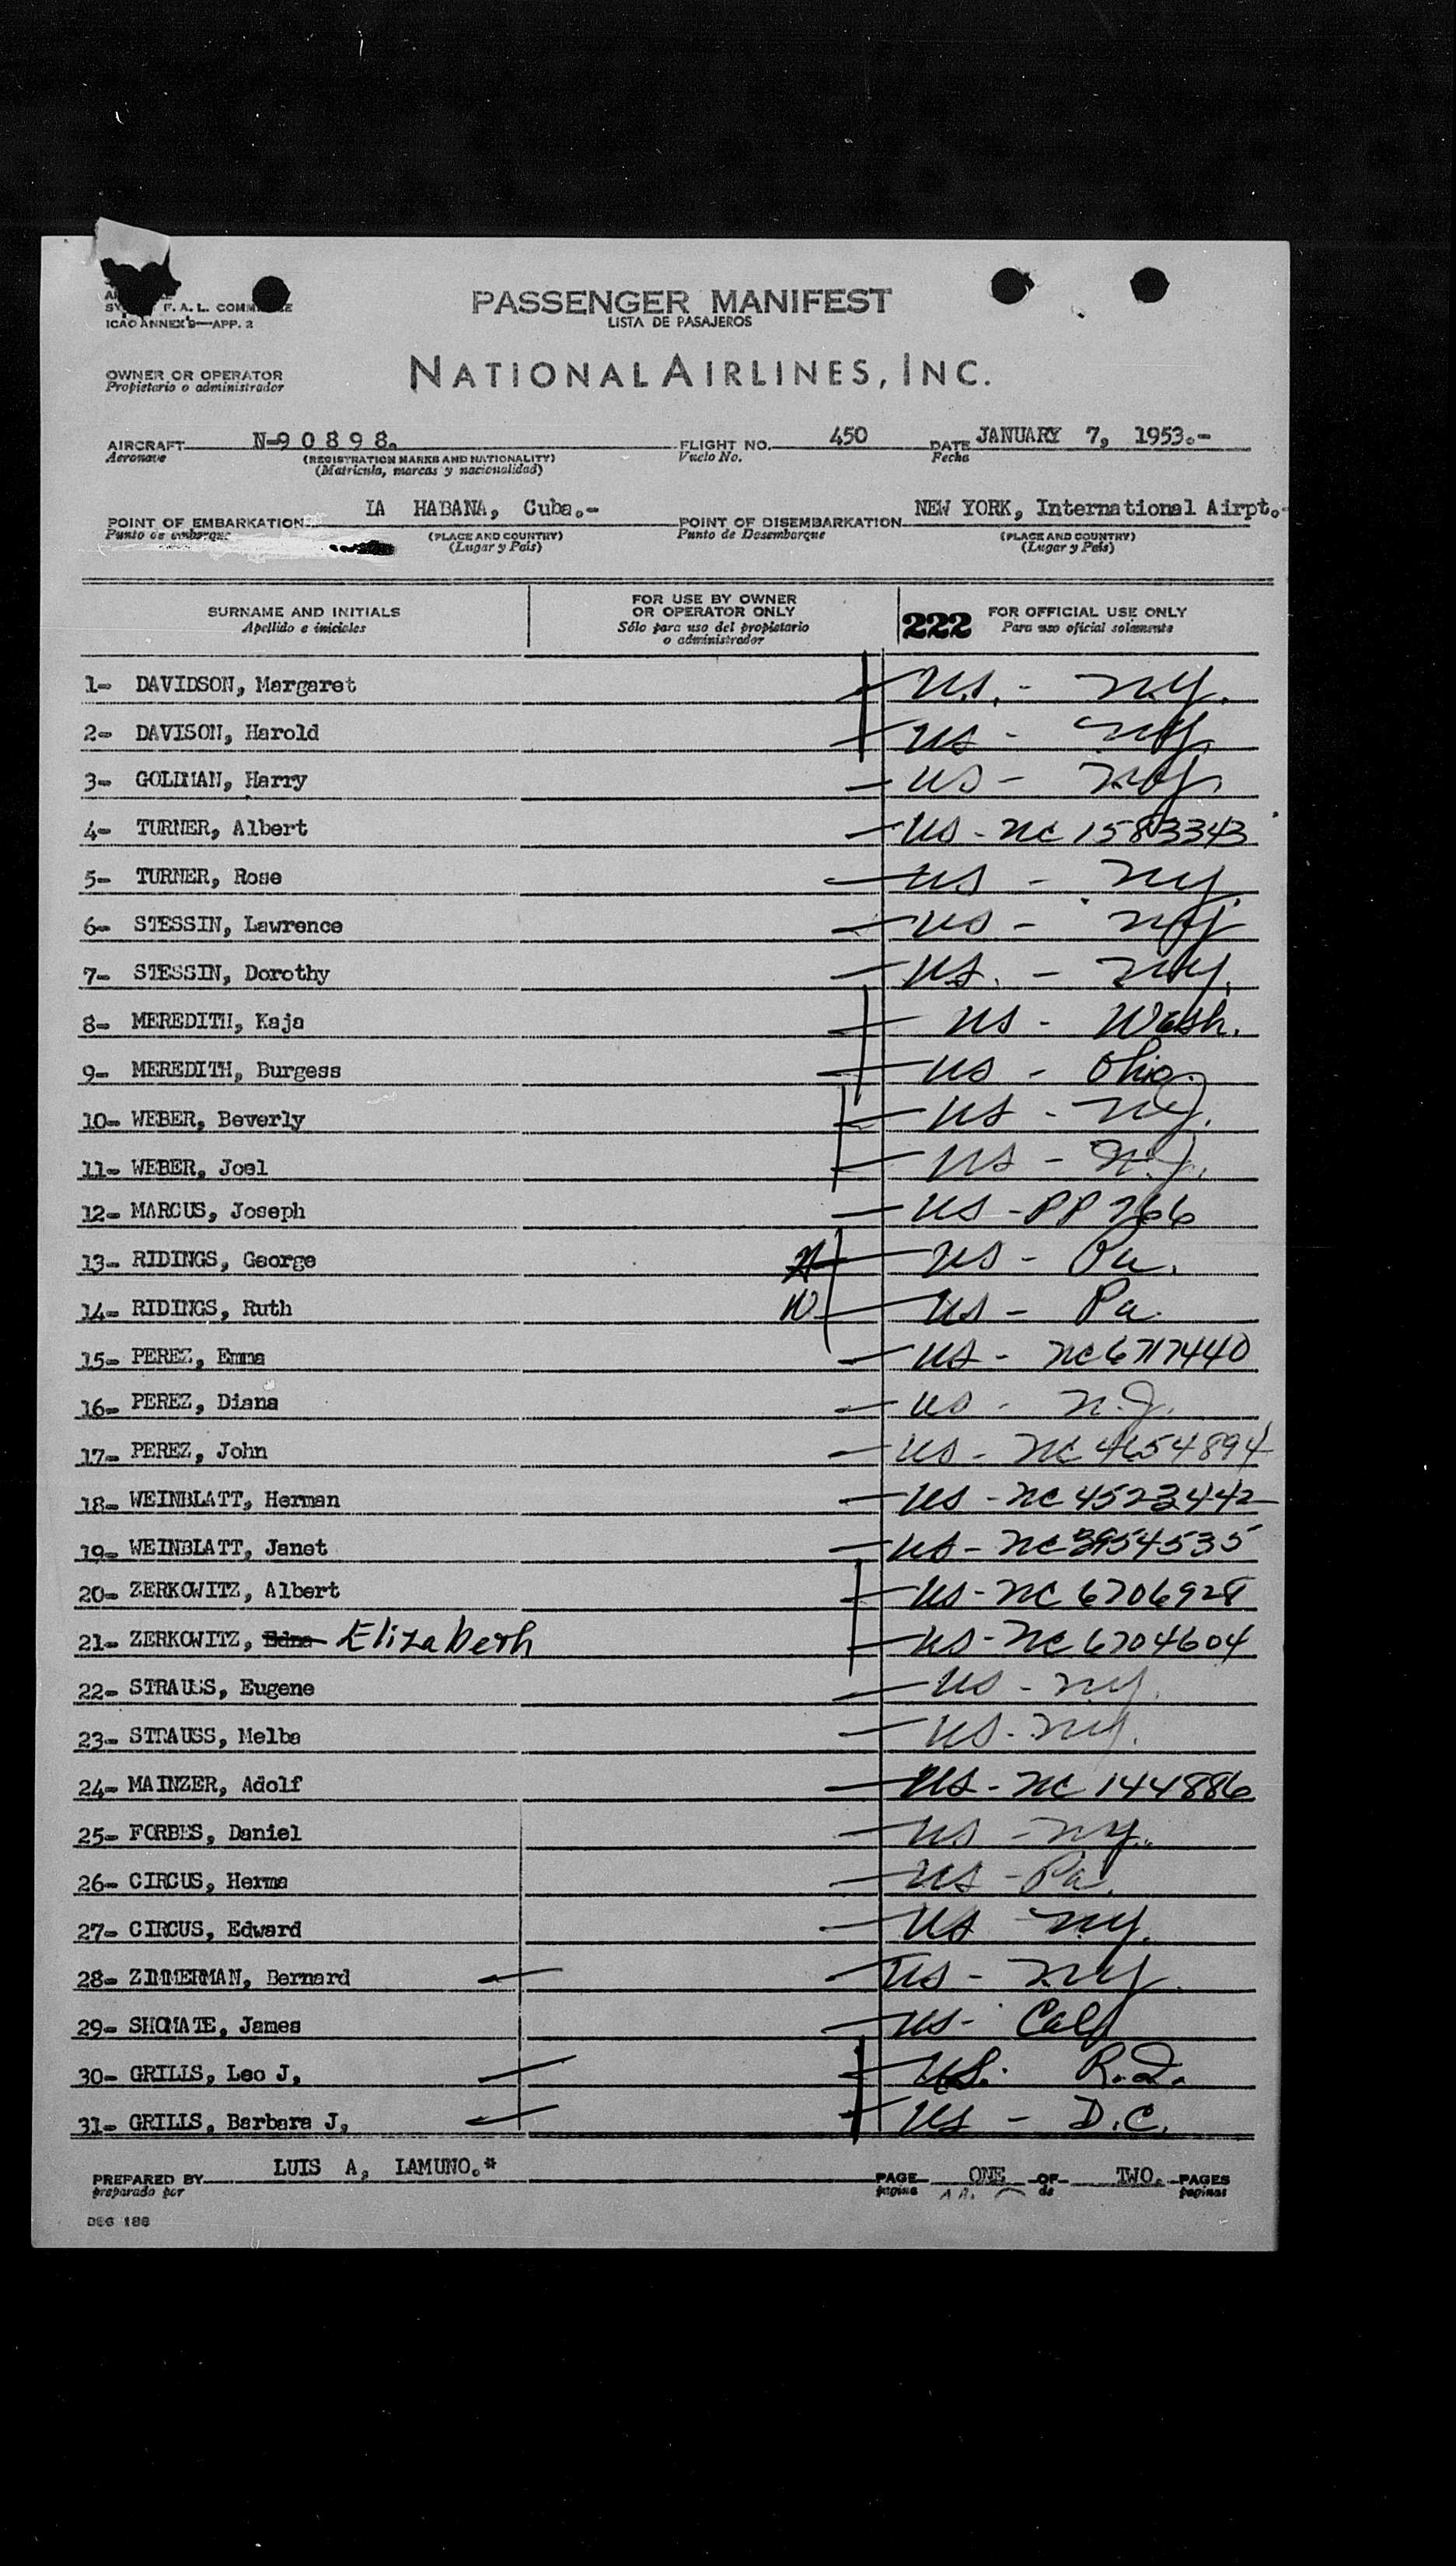 F. A. L.
ICAO ANNEX 9—APP. 2
PASSENGER MANIFEST
LISTA DE PASAJEROS
NATIONAL AIRLINES, INC.
OWNER OR OPERATOR
Propietario o administrador
AIRCRAFT N-90898. FLIGHT NO. 450 DATE JANUARY 7, 1953.-
Aeronave (REGISTRATION MARKS AND NATIONALITY) Vuelo No. Fecha
(Matrícula, marcas y nacionalidad)
POINT OF EMBARKATION LA HABANA, Cuba.- POINT OF DISEMBARKATION NEW YORK, International Airpt.-
Punto de embarque (PLACE AND COUNTRY) Punto de Desembarque (PLACE AND COUNTRY)
(Lugar y País) (Lugar y País)
SURNAME AND INITIALS
Apellido e iniciales
FOR USE BY OWNER
OR OPERATOR ONLY
Sólo para uso del propietario
o administrador
222 FOR OFFICIAL USE ONLY
Para uso oficial solamente
1- DAVIDSON, Margaret US. - N.Y.
2- DAVISON, Harold US - NY.
3- GOLDMAN, Harry US - N.Y.
4- TURNER, Albert US - NC 1583343
5- TURNER, Rose US - NY
6- STESSIN, Lawrence US - NY
7- STESSIN, Dorothy US. - NY.
8- MEREDITH, Kaja US - Wash.
9- MEREDITH, Burgess US - Ohio.
10- WEBER, Beverly US - N.J.
11- WEBER, Joel US - N.J.
12- MARCUS, Joseph US - PP 266
13- RIDINGS, George US - Pa.
14- RIDINGS, Ruth W US - Pa
15- PEREZ, Emma US - NC 6717440
16- PEREZ, Diana US - N.J.
17- PEREZ, John US - NC 4654894
18- WEINBLATT, Herman US - NC 4523442
19- WEINBLATT, Janet US - NC 3954535
20- ZERKOWITZ, Albert US - NC 6706928
21- ZERKOWITZ, Edna Elizabeth US - NC 6704604
22- STRAUSS, Eugene US - NY.
23- STRAUSS, Melba US - NY.
24- MAINZER, Adolf US - NC 144886
25- FORBES, Daniel US - NY.
26- CIRCUS, Herma US - Pa.
27- CIRCUS, Edward US NY.
28- ZIMMERMAN, Bernard US - NY.
29- SHOMATE, James US - Calf
30- GRILLS, Leo J. US. R.I.
31- GRILLS, Barbara J. US - D.C.
PREPARED BY LUIS A. LAMUNO.* PAGE ONE OF TWO. PAGES
preparado por pagina de paginas
DEG 188